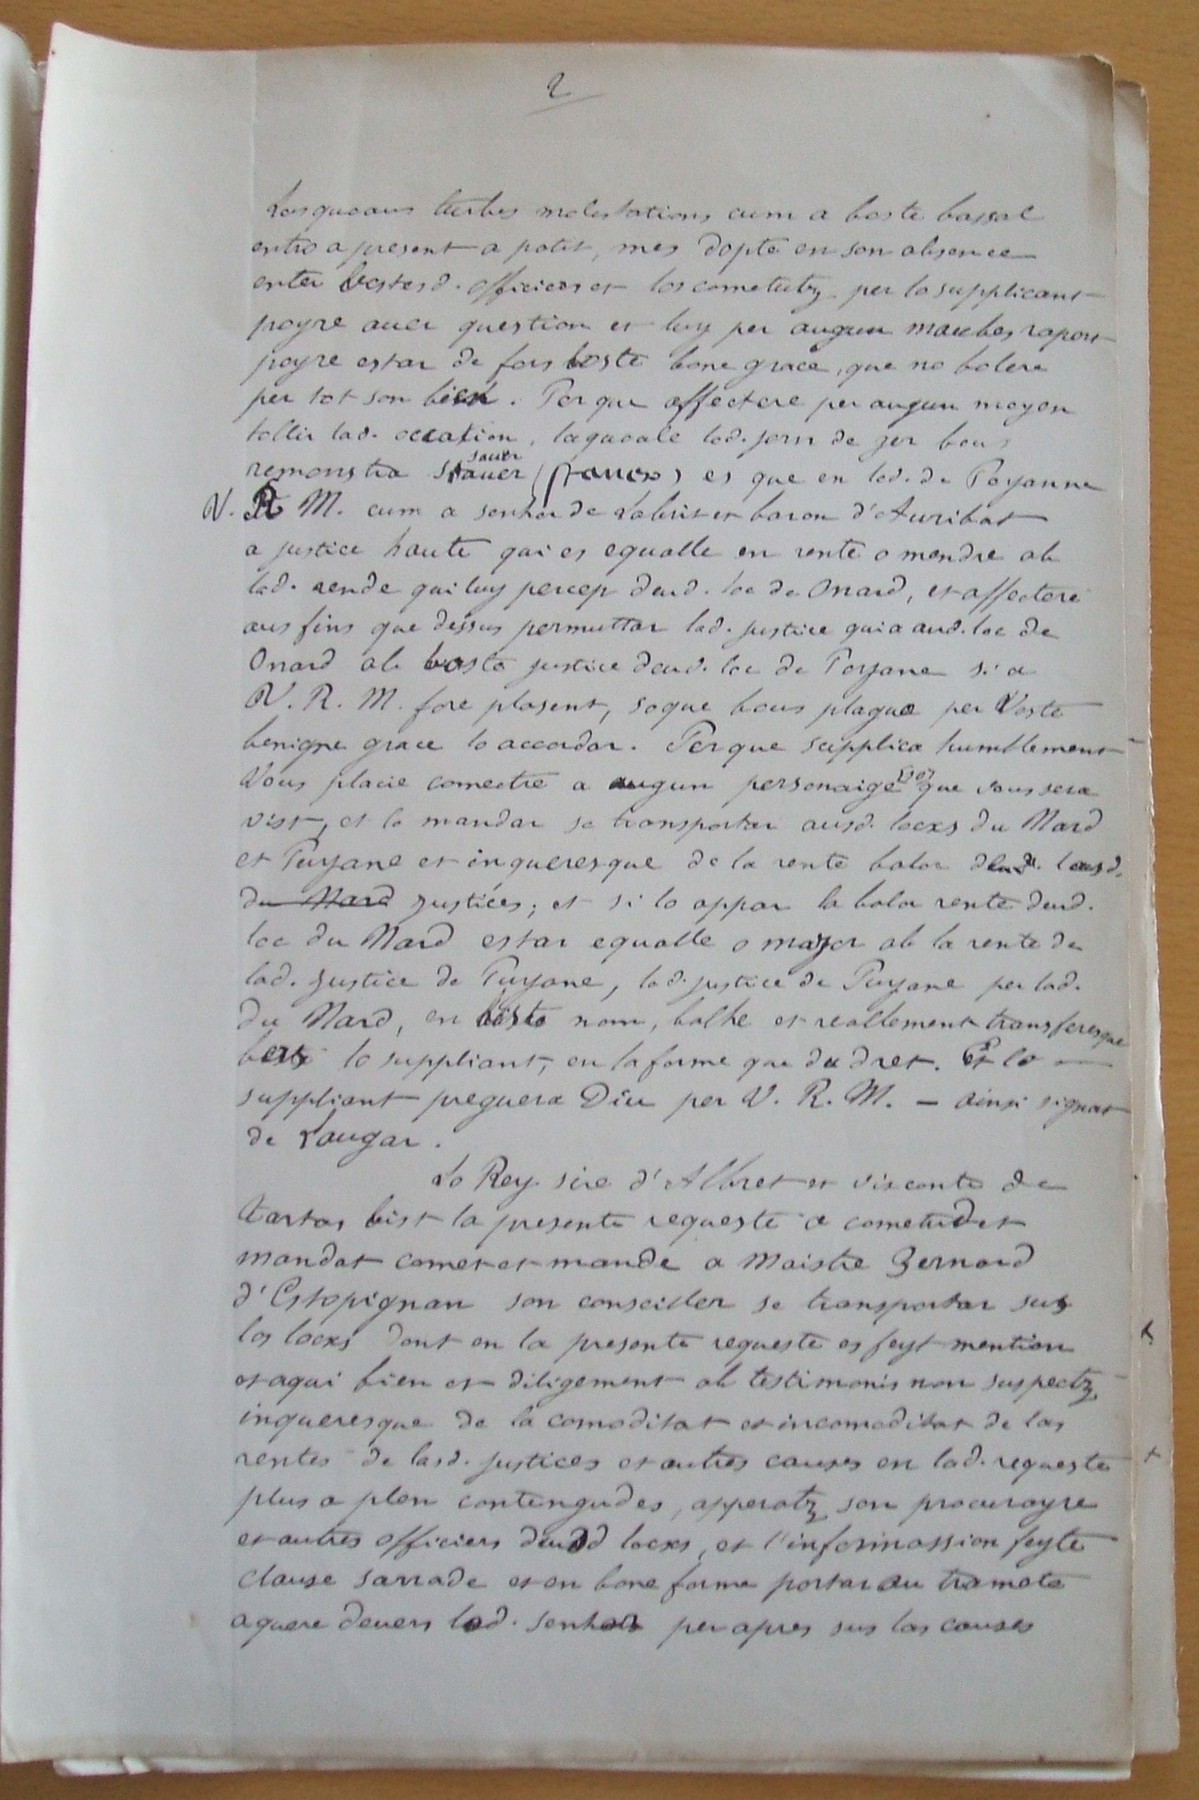 2
Losquaous turbes molestations cum a boste bassal
entro a present a patit, mes dopte en son absence
enter bostes d. officiers et los cometutz per lo supplicant
poyre auer question et luy per augun maubes raport
poyre estar de fors boste bone grace, que no bolere
per tot son bien. Per que affectere per augun moyen
tollir lad. occasion, laquoale lod. jorn de jer bous
remonstra sauer es que en lod. de Poyanne
V. R. M. cum a senhor de Labrit et baron d'Auribat
a justice haute qui es equalle en rente o mendre ab
lad. rende qui luy percep deud. loc de Onard, et affectere
aus fins que dessus permuttar lad. justice qui a aud. loc de
Onard ab bosto justice deud. loc de Poyane si a
V. R. M. fore plasent, so que bous plagua per Voste
benigne grace lo accordar. Per que supplica humblement
Vous placie comectre a augun personaige que vous sera
vist, et lo mandar se transportar ausd. locxs du Nard
et Puyane et inqueresque de la rente balor lasd.
du Nard justices; et si lo appar la balor rente deud.
loc du Nard estar equalle o major ab la rente de
lad. justice de Puyane, lad. justice de Puyane per lad.
du Nard, en bosto nom, balhe et reallement transferesque
betz lo suppliant, en la forme que de dret. Et lo
suppliant preguera Diu per V. R. M. — ainsi signat
de Laugar.
Lo Rey sire d'Albret et viconte de
Tartas bist la presente requeste a cometudet
mandat comet et mande a Maistre Bernard
d'Estopignan son conseiller se transportar sus
los locxs dont en la presente requeste es feyt mention
et aqui bien et diligement ab testimonis non suspectz
inqueresque de la comoditat et incomoditat de las
rentes de lasd. justices et autres causes en lad. requeste
plus a plen contengudes, apperatz son procurayre
et autres officiers deusd locxs, et l'informassion feyte
clause sarrade et en bone forme portar ou tramete
aquere deuers lod. senhor per apres sus las causes